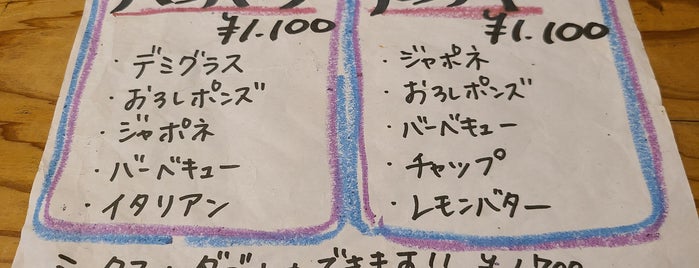 ¥1.100
・デミグラス
・おろしポンズ
・ジャポネ
・バーベキュー
・イタリアン
¥1.100
・ジャポネ
・おろしポンズ
・バーベキュー
・チャップ
・レモンバター
できます!! ¥1,700